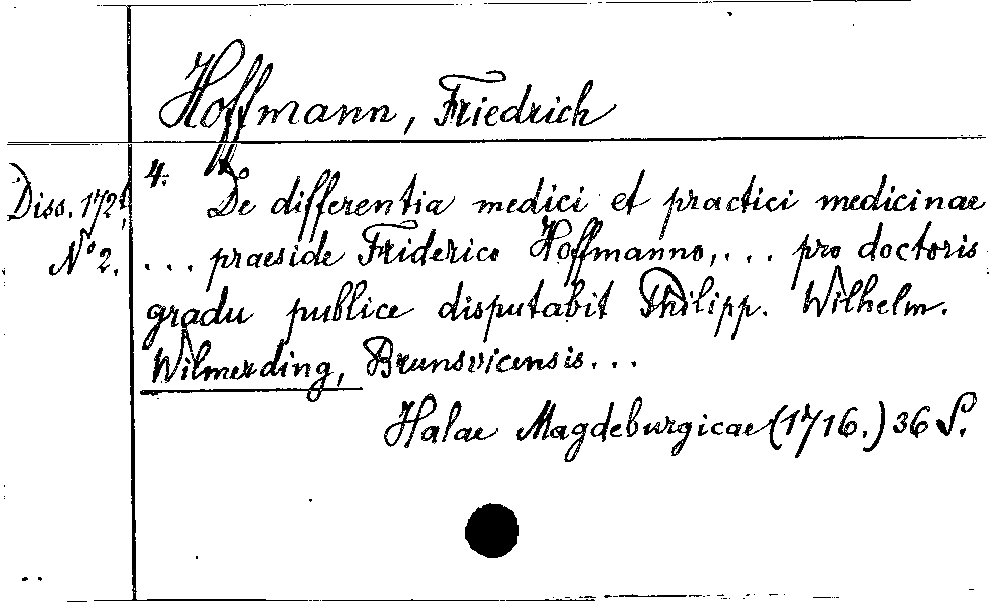 Hoffmann, Friedrich
4.
Diss. 172
De differentia medici et practici medicinae
No 2.
... praeside Friderico Hoffmanno,... pro doctoris
gradu publice disputabit Philipp. Wilhelm.
Wilmerding, Brunsvicensis...
Halae Magdeburgicae (1716.) 36 S.